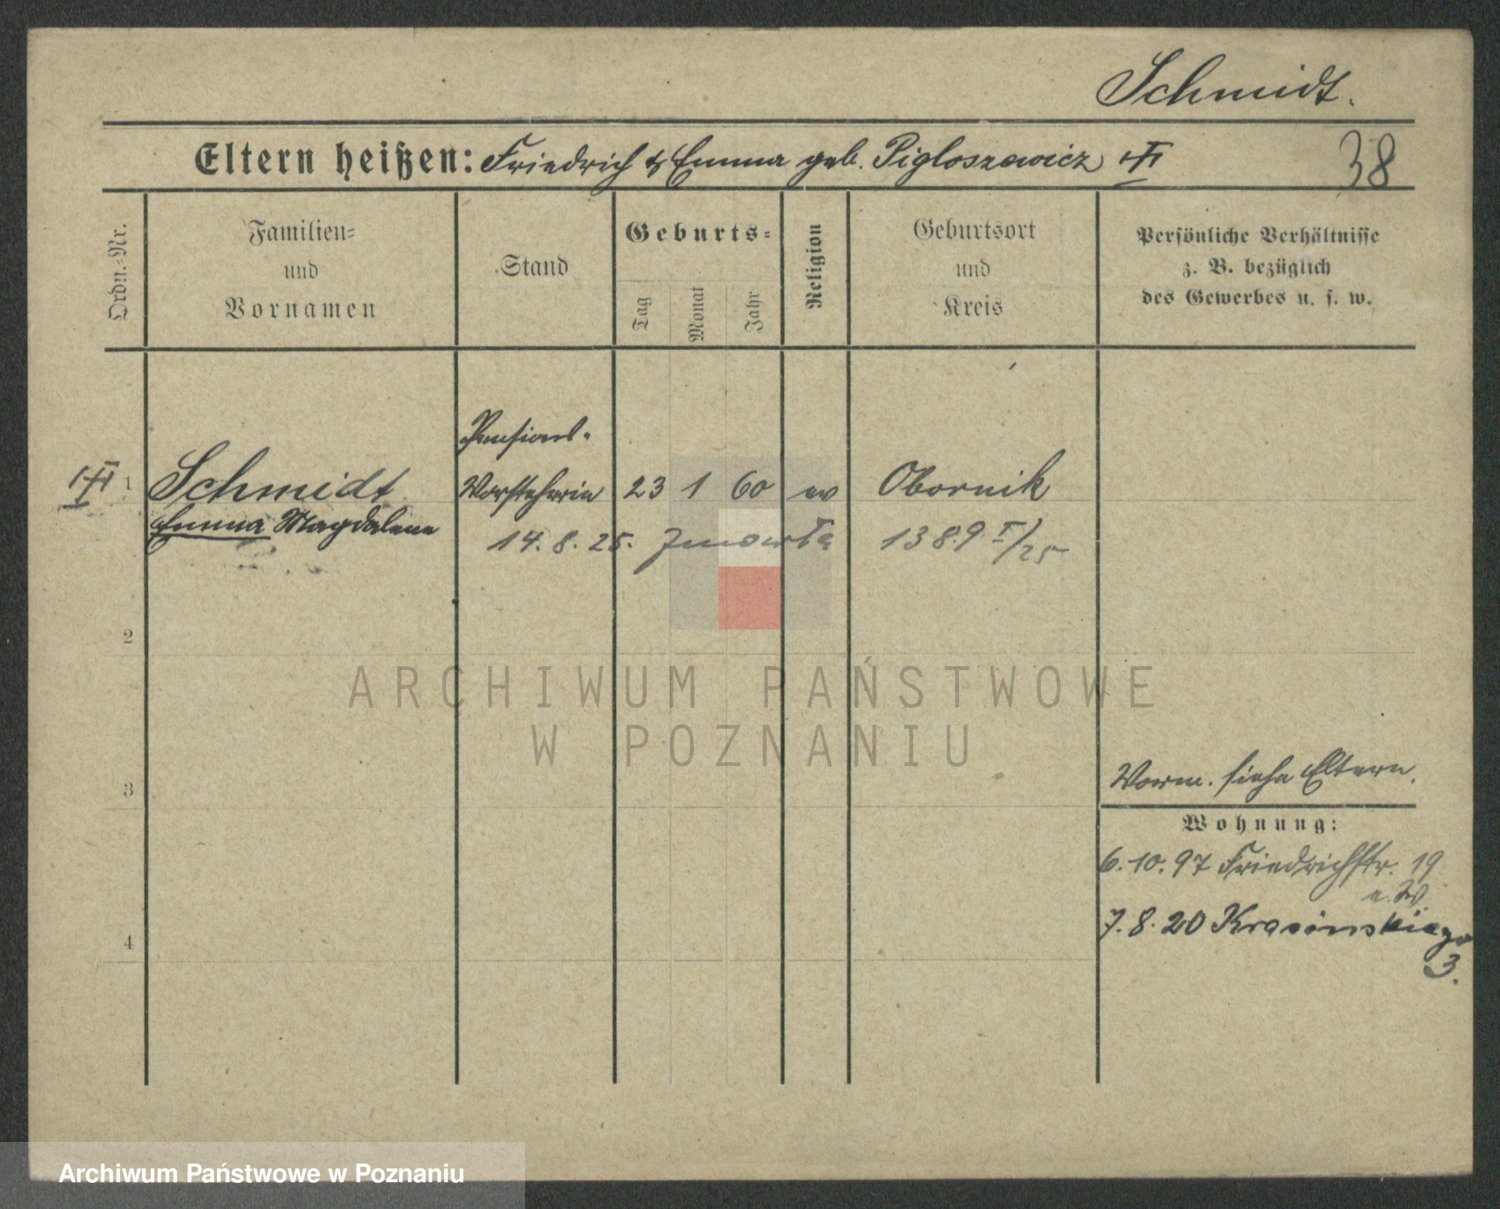 Schmidt.
Eltern heißen: Friedrich & Emma geb. Pigloszewicz
38
Ordn.-Nr.
Familien-
und
Vornamen
Stand
Geburts-
Tag
Monat
Jahr
Religion
Geburtsort
und
Kreis
Persönliche Verhältnisse
z. B. bezüglich
des Gewerbes u. s. w.
Pensions-
1 Schmidt Vorsteherin 23 1 60 ev Obornik
Emma Magdalene
14. 8. 25. zmarła 1389 I/25
2
ARCHIWUM PAŃSTWOWE
W POZNANIU
3
Vorm. siehe Eltern.
Wohnung:
6.10.97 Friedrichstr. 19
4
7.8.20 Krasinskiego
3.
Archiwum Państwowe w Poznaniu